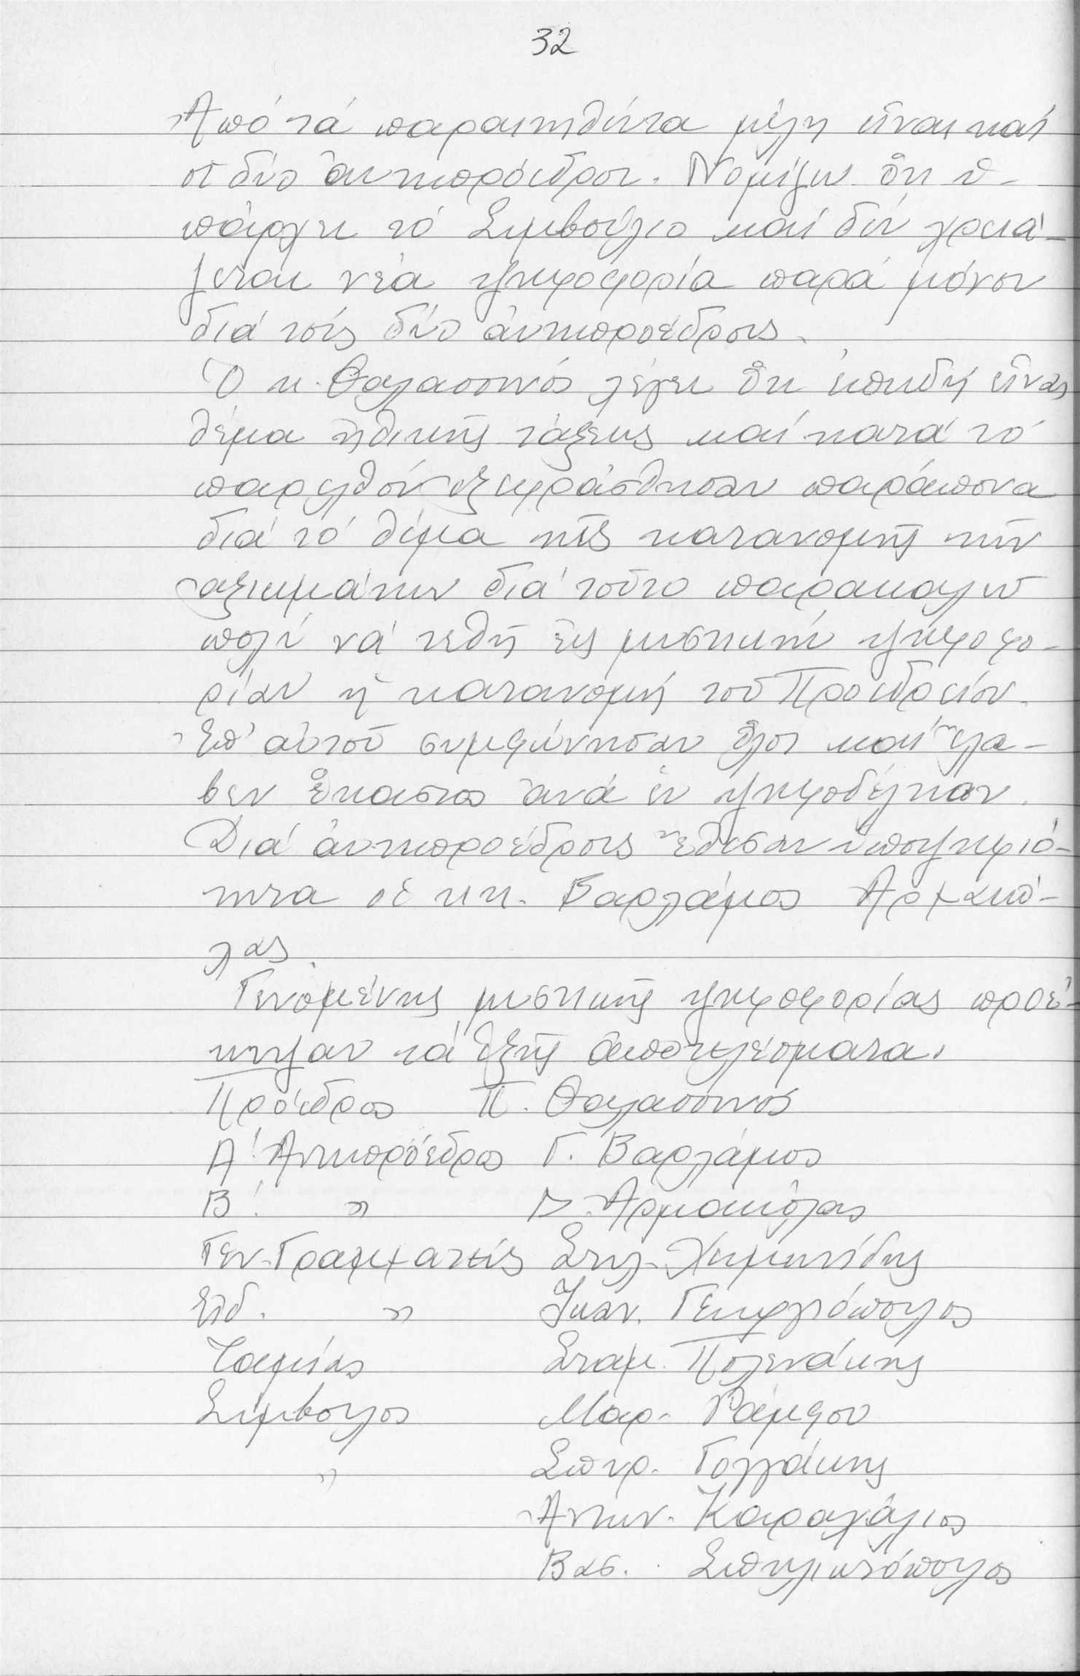 32
Ἀπό τά παραιτηθέντα μέλη εἶναι καί
οἱ δύο ἀντιπρόεδροι. Νομίζω ὅτι ὑ-
πάρχει τό Συμβούλιο καί δέν χρειά-
ζεται νέα ψηφοφορία παρά μόνον
διά τούς δύο ἀντιπροέδρους.
Ὁ κ. Θαλασσινός λέγει ὅτι ἐπειδή εἶναι
θέμα ἠθικῆς τάξεως καί κατά τό
παρελθόν ἐξεφράσθησαν παράπονα
διά τό θέμα τῆς κατανομῆς τῶν
ἀξιωμάτων διά τοῦτο παρακαλῶ
πολύ νά τεθῆ εἰς μυστικήν ψηφοφο-
ρίαν ἡ κατανομή τοῦ Προεδρείου.
Ἐπ' αὐτοῦ συμφώνησαν ὅλοι καί ἔλα-
βεν ἕκαστος ἀνά ἕν ψηφοδέλτιον.
Διά ἀντιπροέδρους ἔθεσαν ὑποψηφιό-
τητα οἱ κκ. Βαρλάμος Αρμακό-
λας.
Γενομένης μυστικῆς ψηφοφορίας προέ-
κυψαν τά ἑξῆς ἀποτελέσματα.
Πρόεδρος Π. Θαλασσινός
Α! Ἀντιπρόεδρος Γ. Βαρλάμος
Β! " Δ. Ἀρμακόλας
Γεν. Γραμματεύς Στυλ. Χειμωνίδης
Εἰδ. " Ἰωαν. Γεωργιόπουλος
Ταμίας Σταμ. Πολενάκης
Σύμβουλος Μαρ. Ράμφου
" Σπυρ. Γογγάκης
Ἀντων. Καραχάλιος
Βασ.